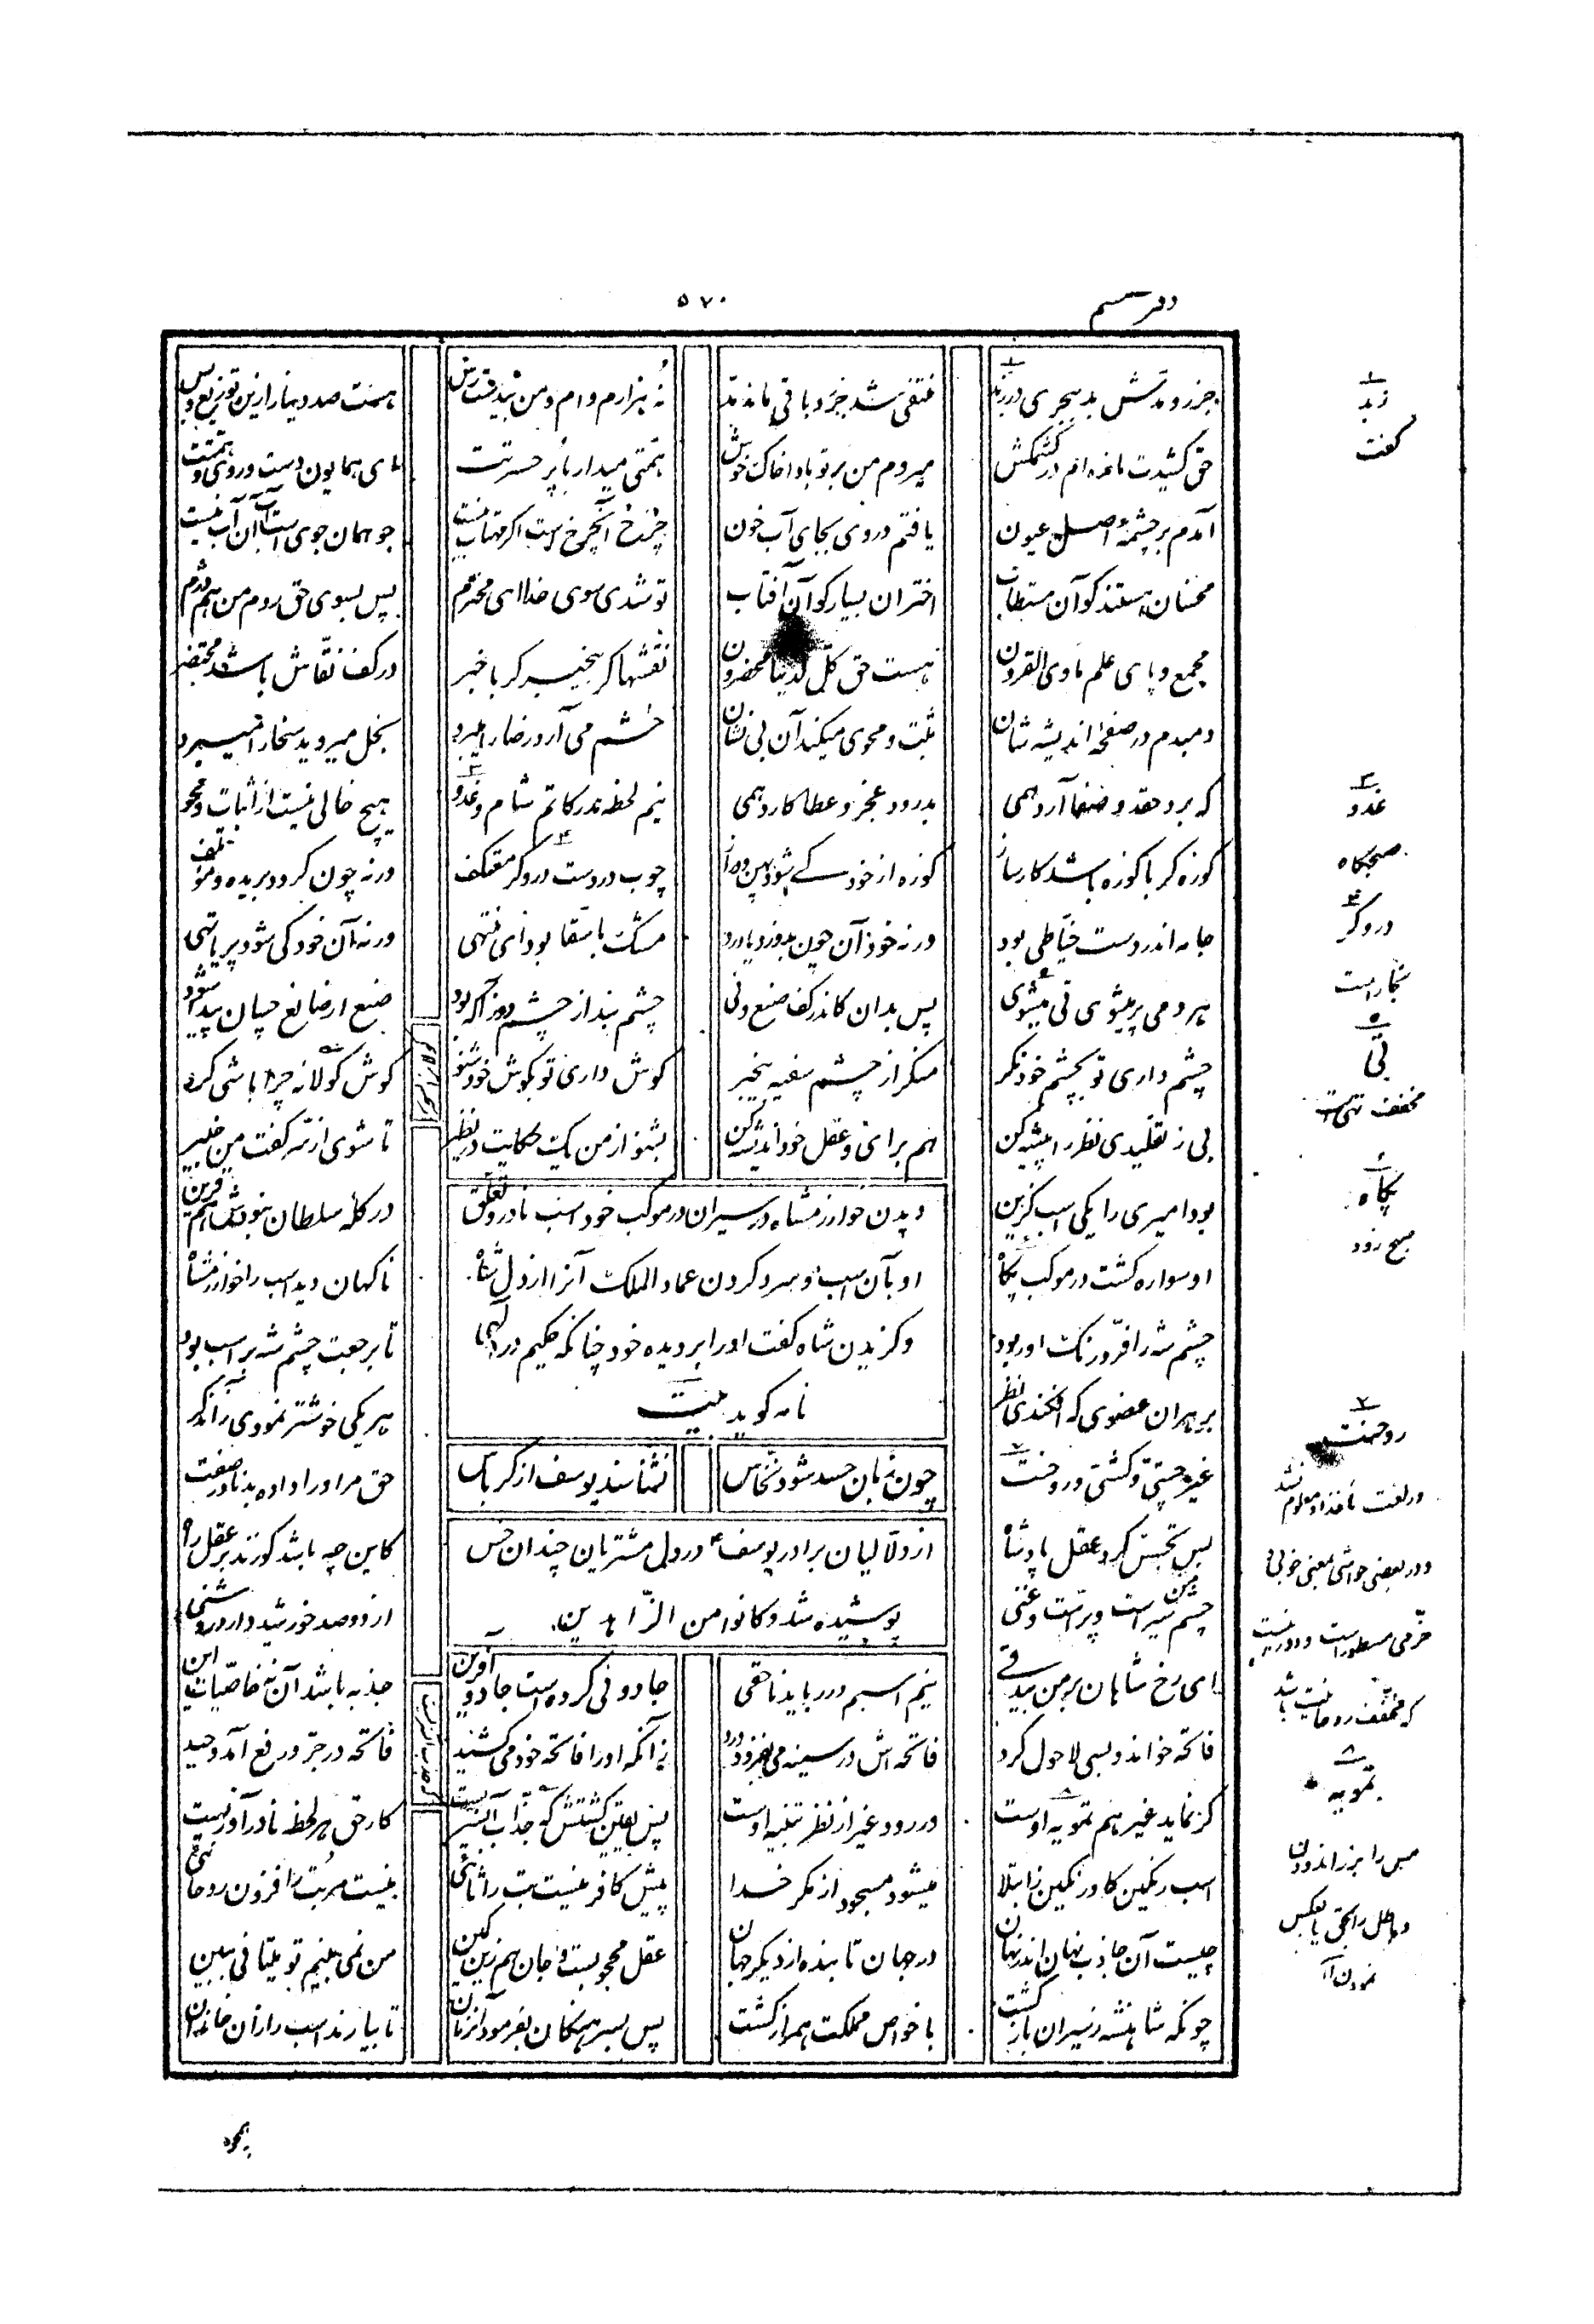 دفتر ششم
۵۷۰
جزر و مدش بد ببحری در زبد منتفی شد جزر و باقی ماند مد نه هزارم وام و من بی دسترس هست صد دینار ازین توزیع و بس
حق کشیدت مانده‌ام در کش‌مکش میروم من بر تو بادا خاک خوش همتی میدار با پر حسرتت ای همایون دست و روی و همتت
آمدم بر چشمهٔ اصل عیون یافتم در وی بجای آب خون چرخ آن چرخ است اگر مهتاب نیست جو همان جوی است آب آن آب نیست
محسنان هستند کو آن مستطاب اختران بسیار کو آن آفتاب تو شدی سوی خدا ای محترم پس بسوی حق روم من نیز هم
مجمع و پای علم ماوی القرون هست حق کل لدینا محضرون نقشها گر بیخبر گر با خبر در کف نقاش باشد محتضر
دمبدم در صفحهٔ اندیشه شان ثبت و محوی میکند آن بی نشان خشم می آرد رضا را میبرد بخل میروید سخا را میبرد
که برد حقد و صفا آرد همی بدرود عجز و عطا کارد همی نیم لحظه مدرکاتم شام و غدو هیچ خالی نیست از اثبات و محو
کوزه گر با کوزه باشد کارساز کوزه از خود کی شود پهن و دراز چوب در دست دروگر معتکف ورنه چون گردد بریده و مؤتلف
جامه اندر دست خیاطی بود ورنه خود آن چون بدوزد یا درد مشک با سقا بود ای منتهی ورنه آن خود کی شود پر یا تهی
هر دمی پر میشوی تی میشوی پس بدان کاندر کف صنع ونی چشم بند از چشم روزی که رود صنع از صانع چسان پیدا شود
چشم داری تو بچشم خود نگر منگر از چشم سفیه بیخبر گوش داری تو بگوش خود شنو گوش گولانه چرا باشی گرو
بی ز تقلیدی نظر را پیشه کن هم برای و عقل خود اندیشه کن بشنو از من یک حکایت در نظیر تا شوی از سر گفت من خبیر
دیدن خوارزمشاه در سیران در موکب خود اسب نادر و تعلق
او بآن اسب و سرد کردن عماد الملک آنرا از دل شاه
و گزیدن شاه گفت او را بر دیده خود چنانکه حکیم در الهی
نامه گوید بیت
بود امیری را یکی اسب گزین در گله سلطان نبودش هم قرین
او سواره گشت در موکب پگاه ناگهان دید اسب را خوارزمشاه
چشم شه را فر و رنگ او ربود تا برجعت چشم شه بر اسب بود
بر هر آن عضوی که افکندی نظر هر یکی خوشتر نمودی زان دگر
غیر چستی و کشی و روحنت حق مر او را داده بد نادر صفت
چون زبان حسد شود نخاس نشناسند یوسف از کرباس
از دلالیان برادر یوسف در دل مشتریان چندان حسن
پوشیده شد و کانوا من الزاهدین
پس تجسس کرد عقل پادشاه کاین چه باشد کو زند بر عقل راه
چشم من سیر است و پر است و غنی از دو صد خورشید دارد روشنی
ای رخ شاهان بر من بیدقی نیم اسبم در رباید ناحقی جادوئی کرده است جادو آفرین جذبه باشد آن نه خاصیات این
فاتحه خواند و بسی لاحول کرد فاتحه اش در سینه می افزود درد زانکه او را فاتحه خود می کشید فاتحه در جر و رفع آمد وحید
گر نماید غیر هم تمویه اوست ور رود غیر از نظر تنبیه اوست پس یقین گشتش که جذب آن سریست کار حق هر لحظه نادر آوریست
اسب رنگین گاو رنگین ز ابتلا میشود مسجود از مکر خدا پیش کافر نیست بت را ثانئی نیست مر بت را فر و نه روحانئی
چیست آن جاذب نهان اندر نهان در جهان تابنده از دیگر جهان عقل محجوبست و جان هم زین کمین من نمی بینم تو میتانی ببین
چونکه شاهنشه ز سیران باز گشت با خواص مملکت همراز گشت پس بسرهنگان بفرمود آن زمان تا بیارند اسب را زان خاندان
۱
زبد
کفت
۳
غدو
صبحگاه
۴
دروگر
نجار است
۵
تی
مخفف تهی است
۶
پگاه
صبح زود
۷
روحنت
در لغت ماخذ او معلوم نشد
و در بعضی حواشی بمعنی خوبی
خرمی مسطور است و دور نیست
که مخفف روحانیت باشد
۸
تمویه
مس را بزر اندودن
و باطل را بحق یا بعکس
نمودن